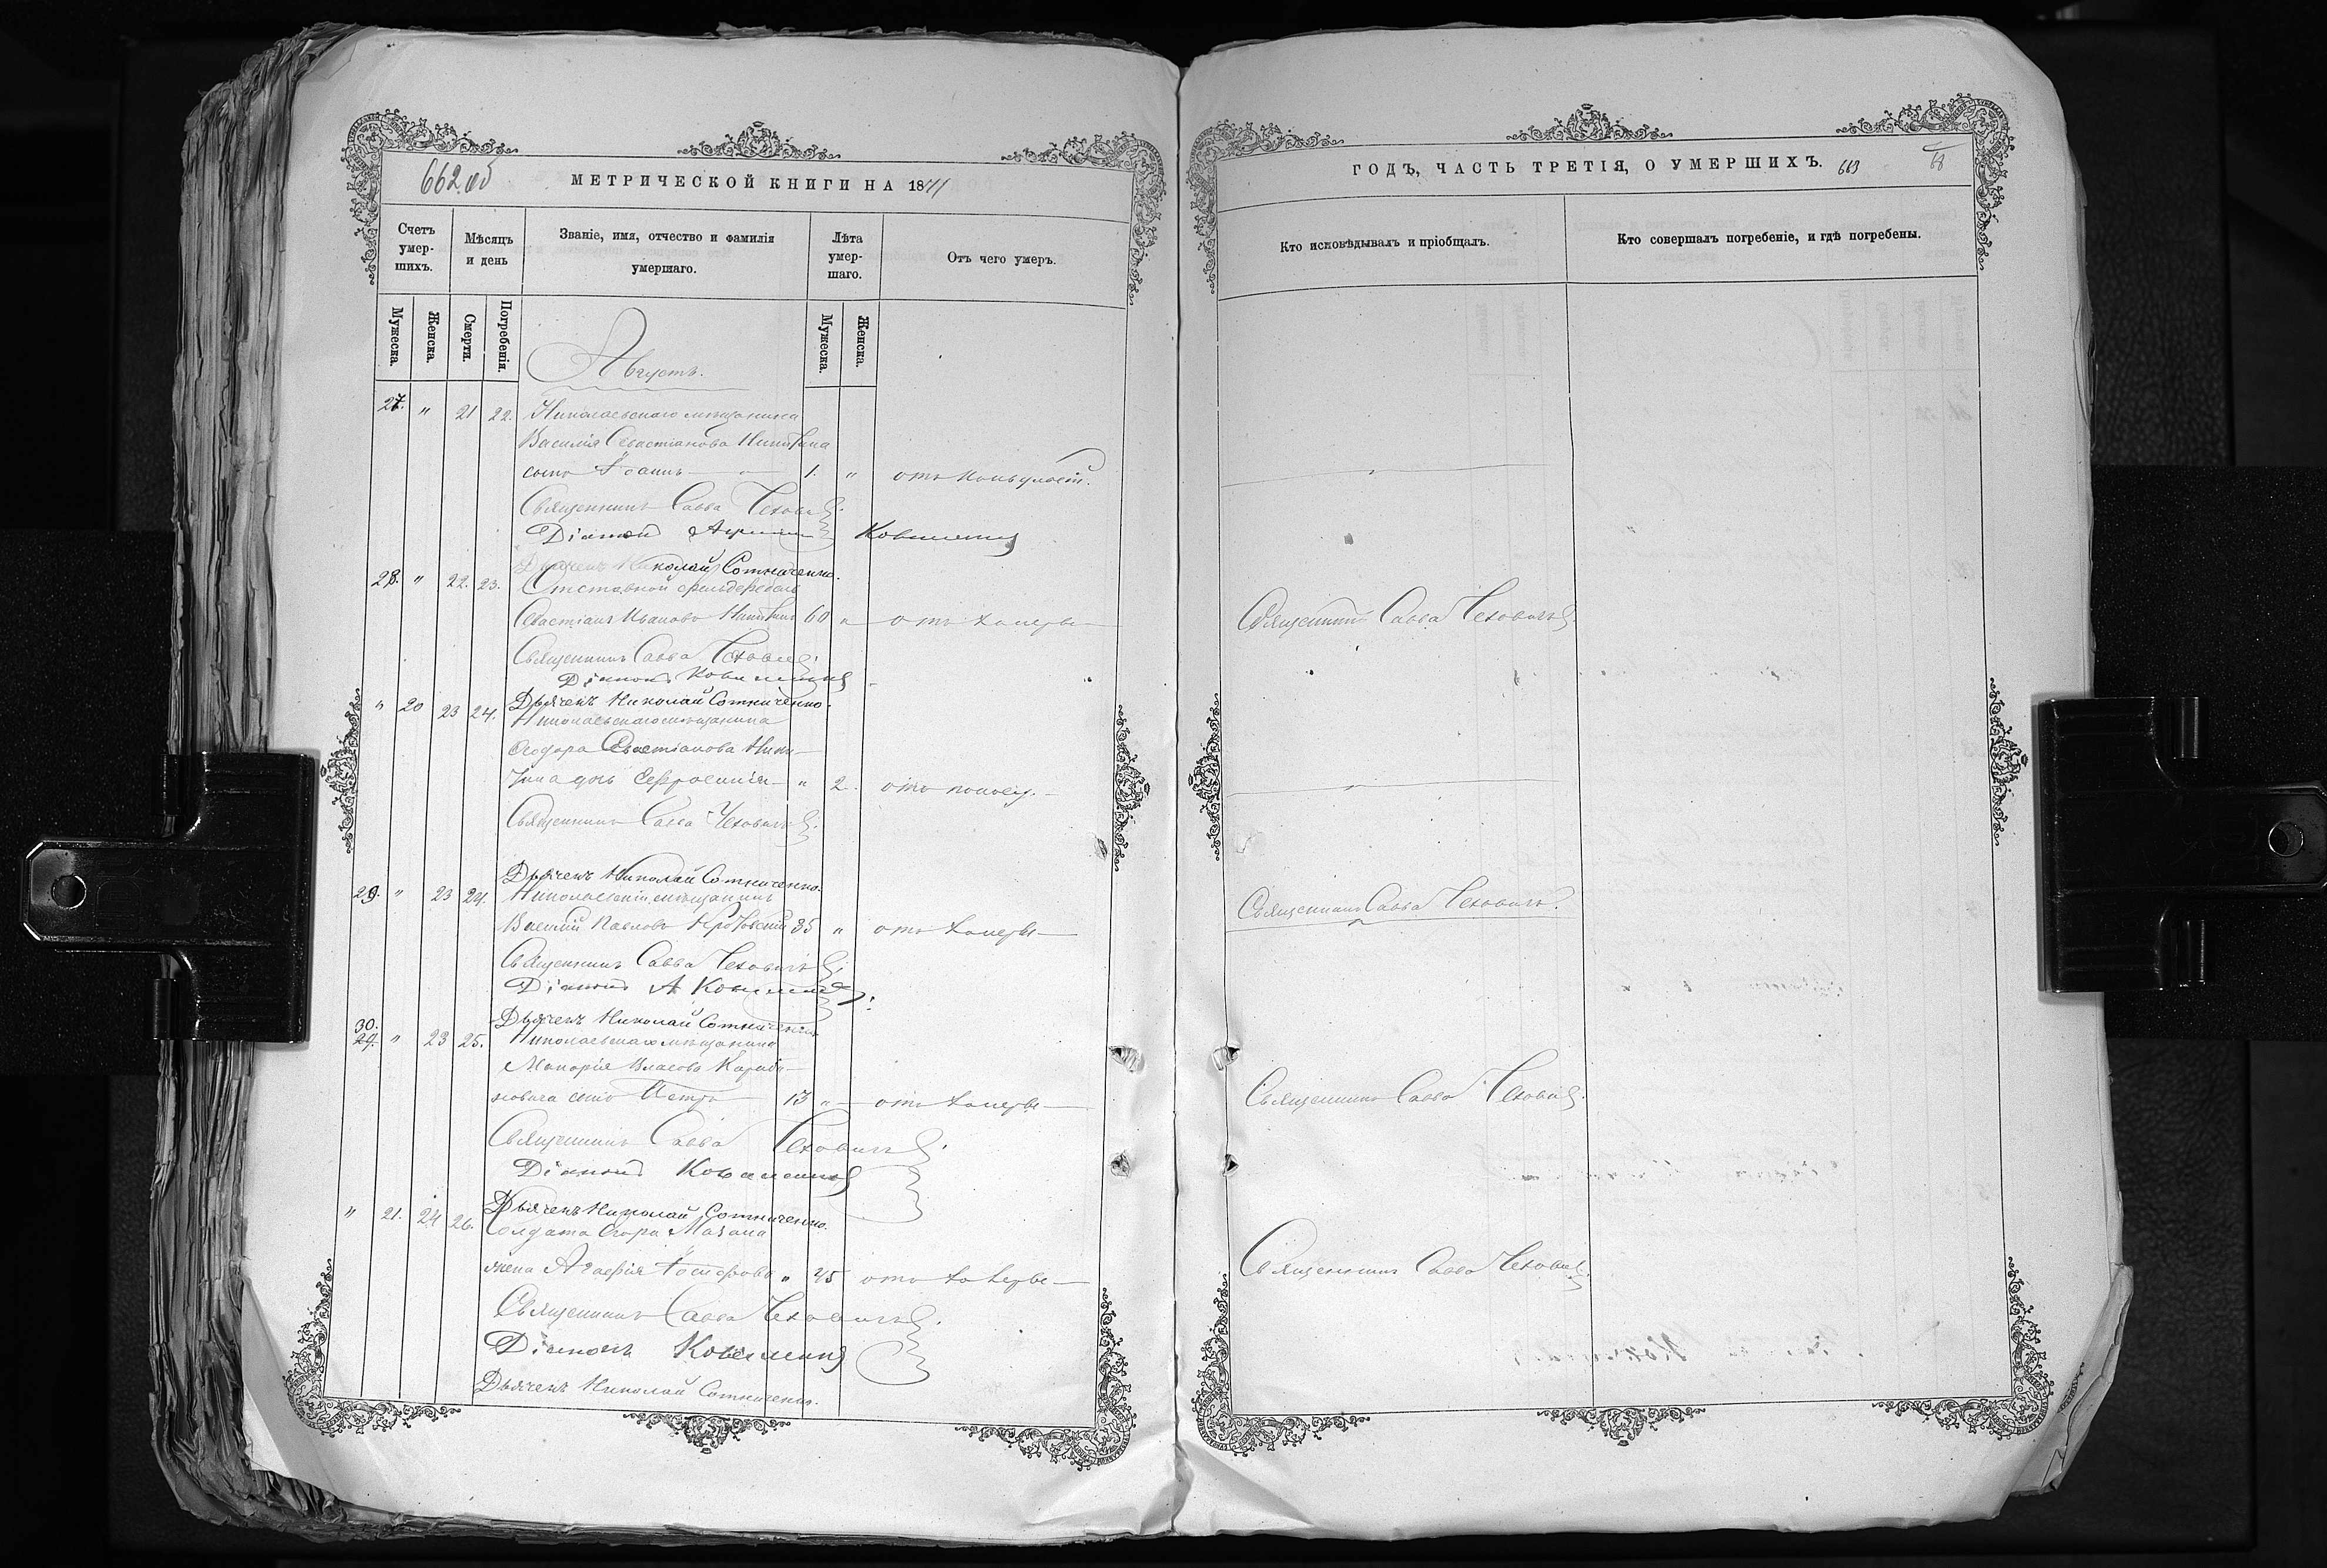 662 об
МЕТРИЧЕСКОЙ КНИГИ НА 1871
Счетъ умер-шихъ.
Мѣсяцъ и день
Званіе, имя, отчество и фамилія умершаго.
Лѣта умер-шаго.
Отъ чего умеръ.
Мужеска.
Женска.
Смерти.
Погребенія.
Мужеска.
Женска.
Августъ.
27. " 21 22. Николаевскаго мѣщанина
Василія Севастіанова Никитина
сынъ Іоаннъ — " — 1. " отъ конвульсій.
Священникъ Савва Чеховичъ
Діаконъ Коваленко
Дьячекъ Николай Сотниченко.
28. " 22. 23. Отставной фельдфебель
Севастіанъ Ивановъ Никитинъ 60 " отъ холеры —
Священникъ Савва Чеховичъ
Діаконъ Коваленко
Дьячекъ Николай Сотниченко.
" 20 23 24. Николаевскаго мѣщанина
Ѳеодора Севастіанова Ники-
тина дочь Евфросинія — " 2.
Священникъ Савва Чеховичъ
Дьячекъ Николай Сотниченко.
29. " 23 24. Николаевскій мѣщанинъ
Василій Павловъ 35 " отъ холеры —
Священникъ Савва Чеховичъ
Діаконъ А Коваленко
Дьячекъ Николай Сотниченко
30.
29. " 23 25. Николаевскаго мѣщанина
Макарія Власова
сынъ Петръ 13 " — отъ холеры —
Священникъ Савва Чеховичъ
Діаконъ Коваленко
Дьячекъ Николай Сотниченко.
" 21. 24 26. Солдата Егора
жена Агафія Іосифова " 45 отъ холеры —
Священникъ Савва Чеховичъ
Діаконъ Коваленко
Дьячекъ Николай Сотниченко.
ГОДЪ, ЧАСТЬ ТРЕТІЯ, О УМЕРШИХЪ.
68
Кто исповѣдывалъ и пріобщалъ.
Кто совершалъ погребеніе, и гдѣ погребены.
Священникъ Савва Чеховичъ
Священникъ Савва Чеховичъ.
Священникъ Савва Чеховичъ
Священникъ Савва Чеховичъ